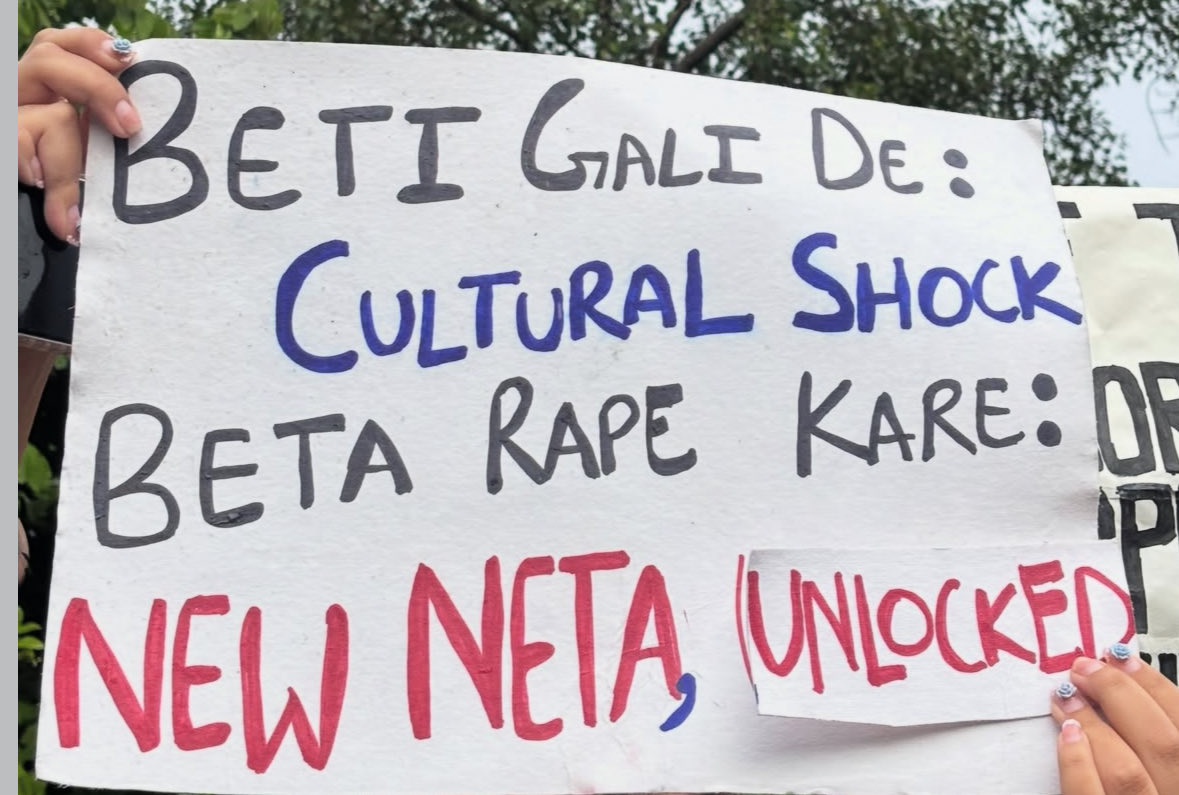 BETI GALI DE:
CULTURAL SHOCK
BETA RAPE KARE:
NEW NETA, UNLOCKED